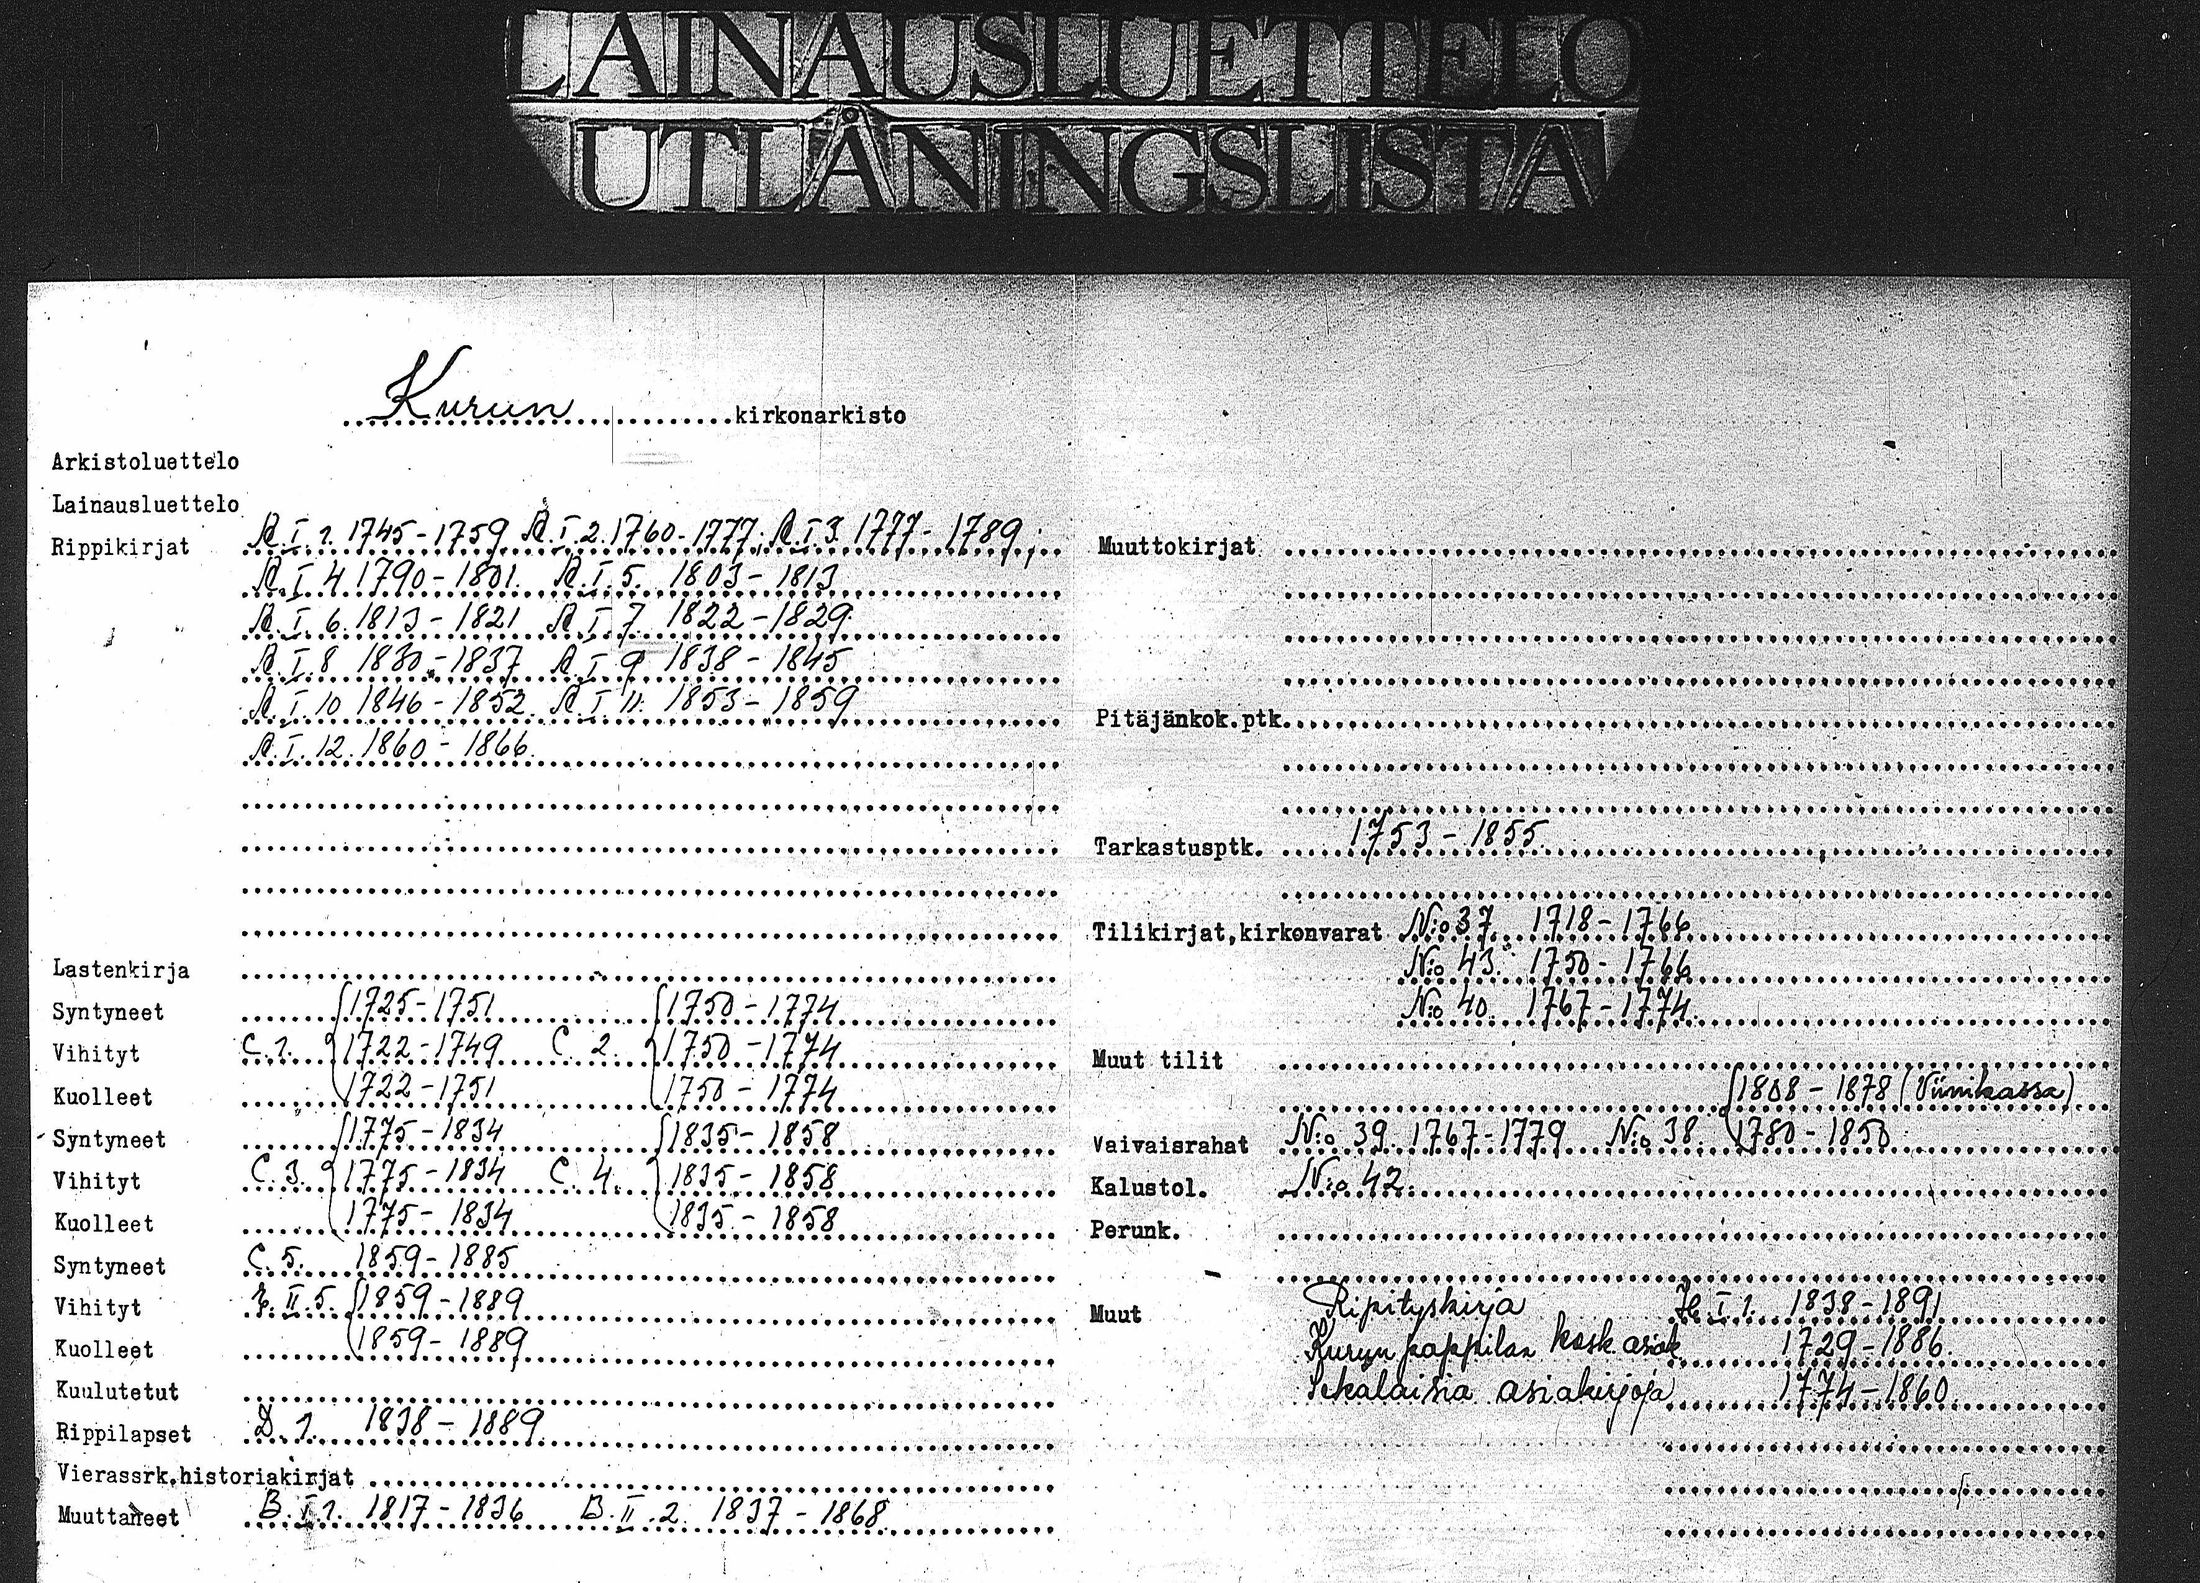 LAINAUSLUETTELO
UTLÅNINGSLISTA
Kurun kirkonarkisto
Arkistoluettelo
Lainausluettelo
Rippikirjat A.I.1. 1745-1759 A.I.2. 1760-1777; A.I.3. 1777-1789;
A.I.4 1790-1801. A.I.5. 1803-1813
A.I.6. 1813-1821 A.I.7. 1822-1829.
A.I.8 1830-1837 A.I.9 1838-1845
A.I.10 1846-1852. A.I.11. 1853-1859
A.I.12. 1860-1866.
Lastenkirja
Syntyneet 1725-1751 1750-1774
Vihityt C.1. 1722-1749 C.2. 1750-1774
Kuolleet 1722-1751 1750-1774
Syntyneet 1775-1834 1835-1858
Vihityt C.3. 1775-1834 C.4. 1835-1858
Kuolleet 1775-1834 1835-1858
Syntyneet C.5. 1859-1885
Vihityt II.5. 1859-1889
Kuolleet 1859-1889
Kuulutetut
Rippilapset D.1. 1838-1889
Vierassrk.historiakirjat
Muuttaneet B.I.1. 1817-1836 B.II.2. 1837-1868
Muuttokirjat
Pitäjänkok.ptk.
Tarkastusptk. 1753-1855.
Tilikirjat,kirkonvarat N:o 37. 1718-1766
N:o 43. 1750-1766
N:o 40. 1767-1774.
Muut tilit
1808-1878 (Viinikassa)
Vaivaisrahat N:o 39. 1767-1779 N:o 38. 1780-1850
Kalustol. N:o 42.
Perunk.
Muut Ripityskirja H.I.1. 1838-1891
Kurun pappilan kosk. asiak. 1729-1886.
Sekalaisia asiakirjoja 1774-1860.